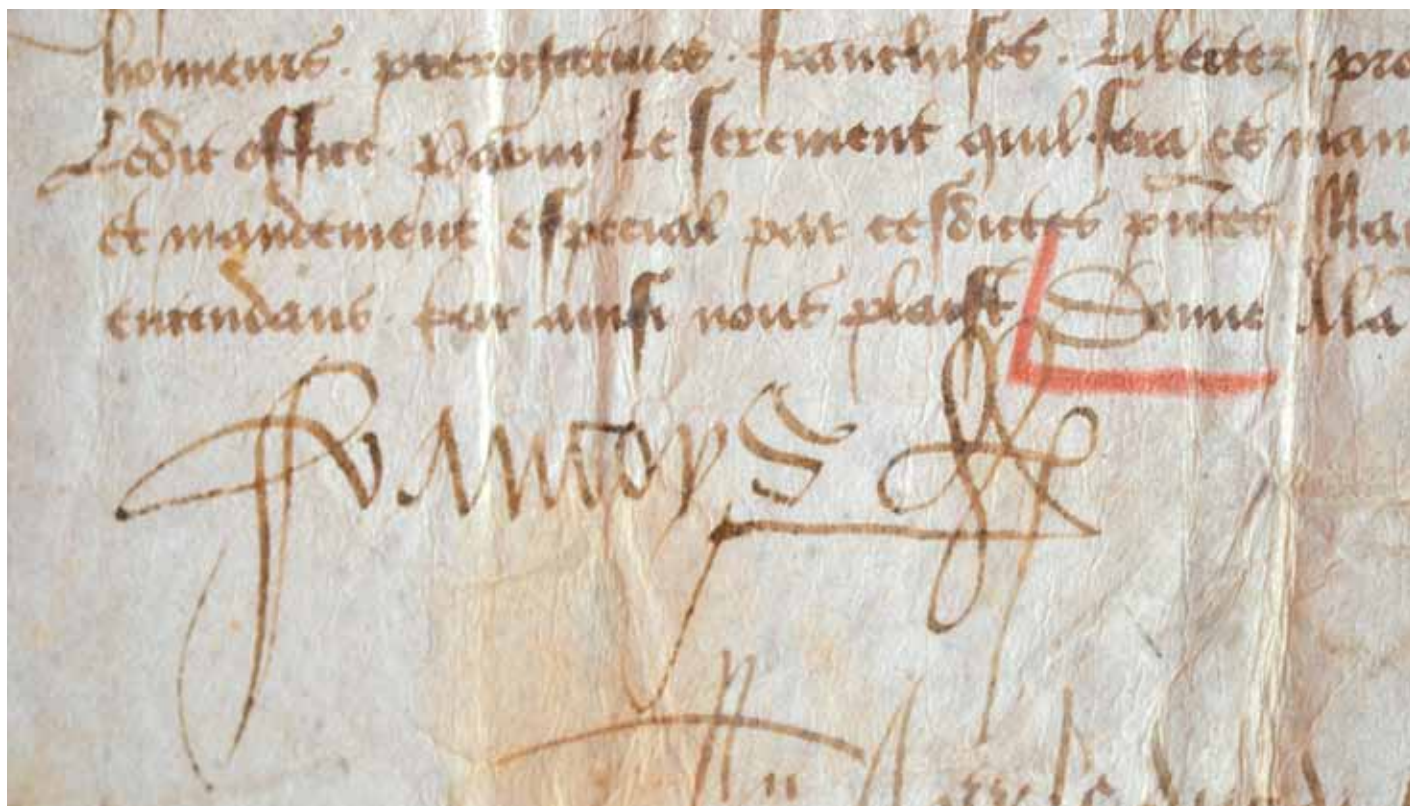 honneurs. prerogatives. franchises. Libertez. pro
Ledit office. Parmi Le serement quil fera et man
et mandement especial par cesdictes pntes. Ma
entendans. Car ainsi nous plaist Donne. A la
Francoys